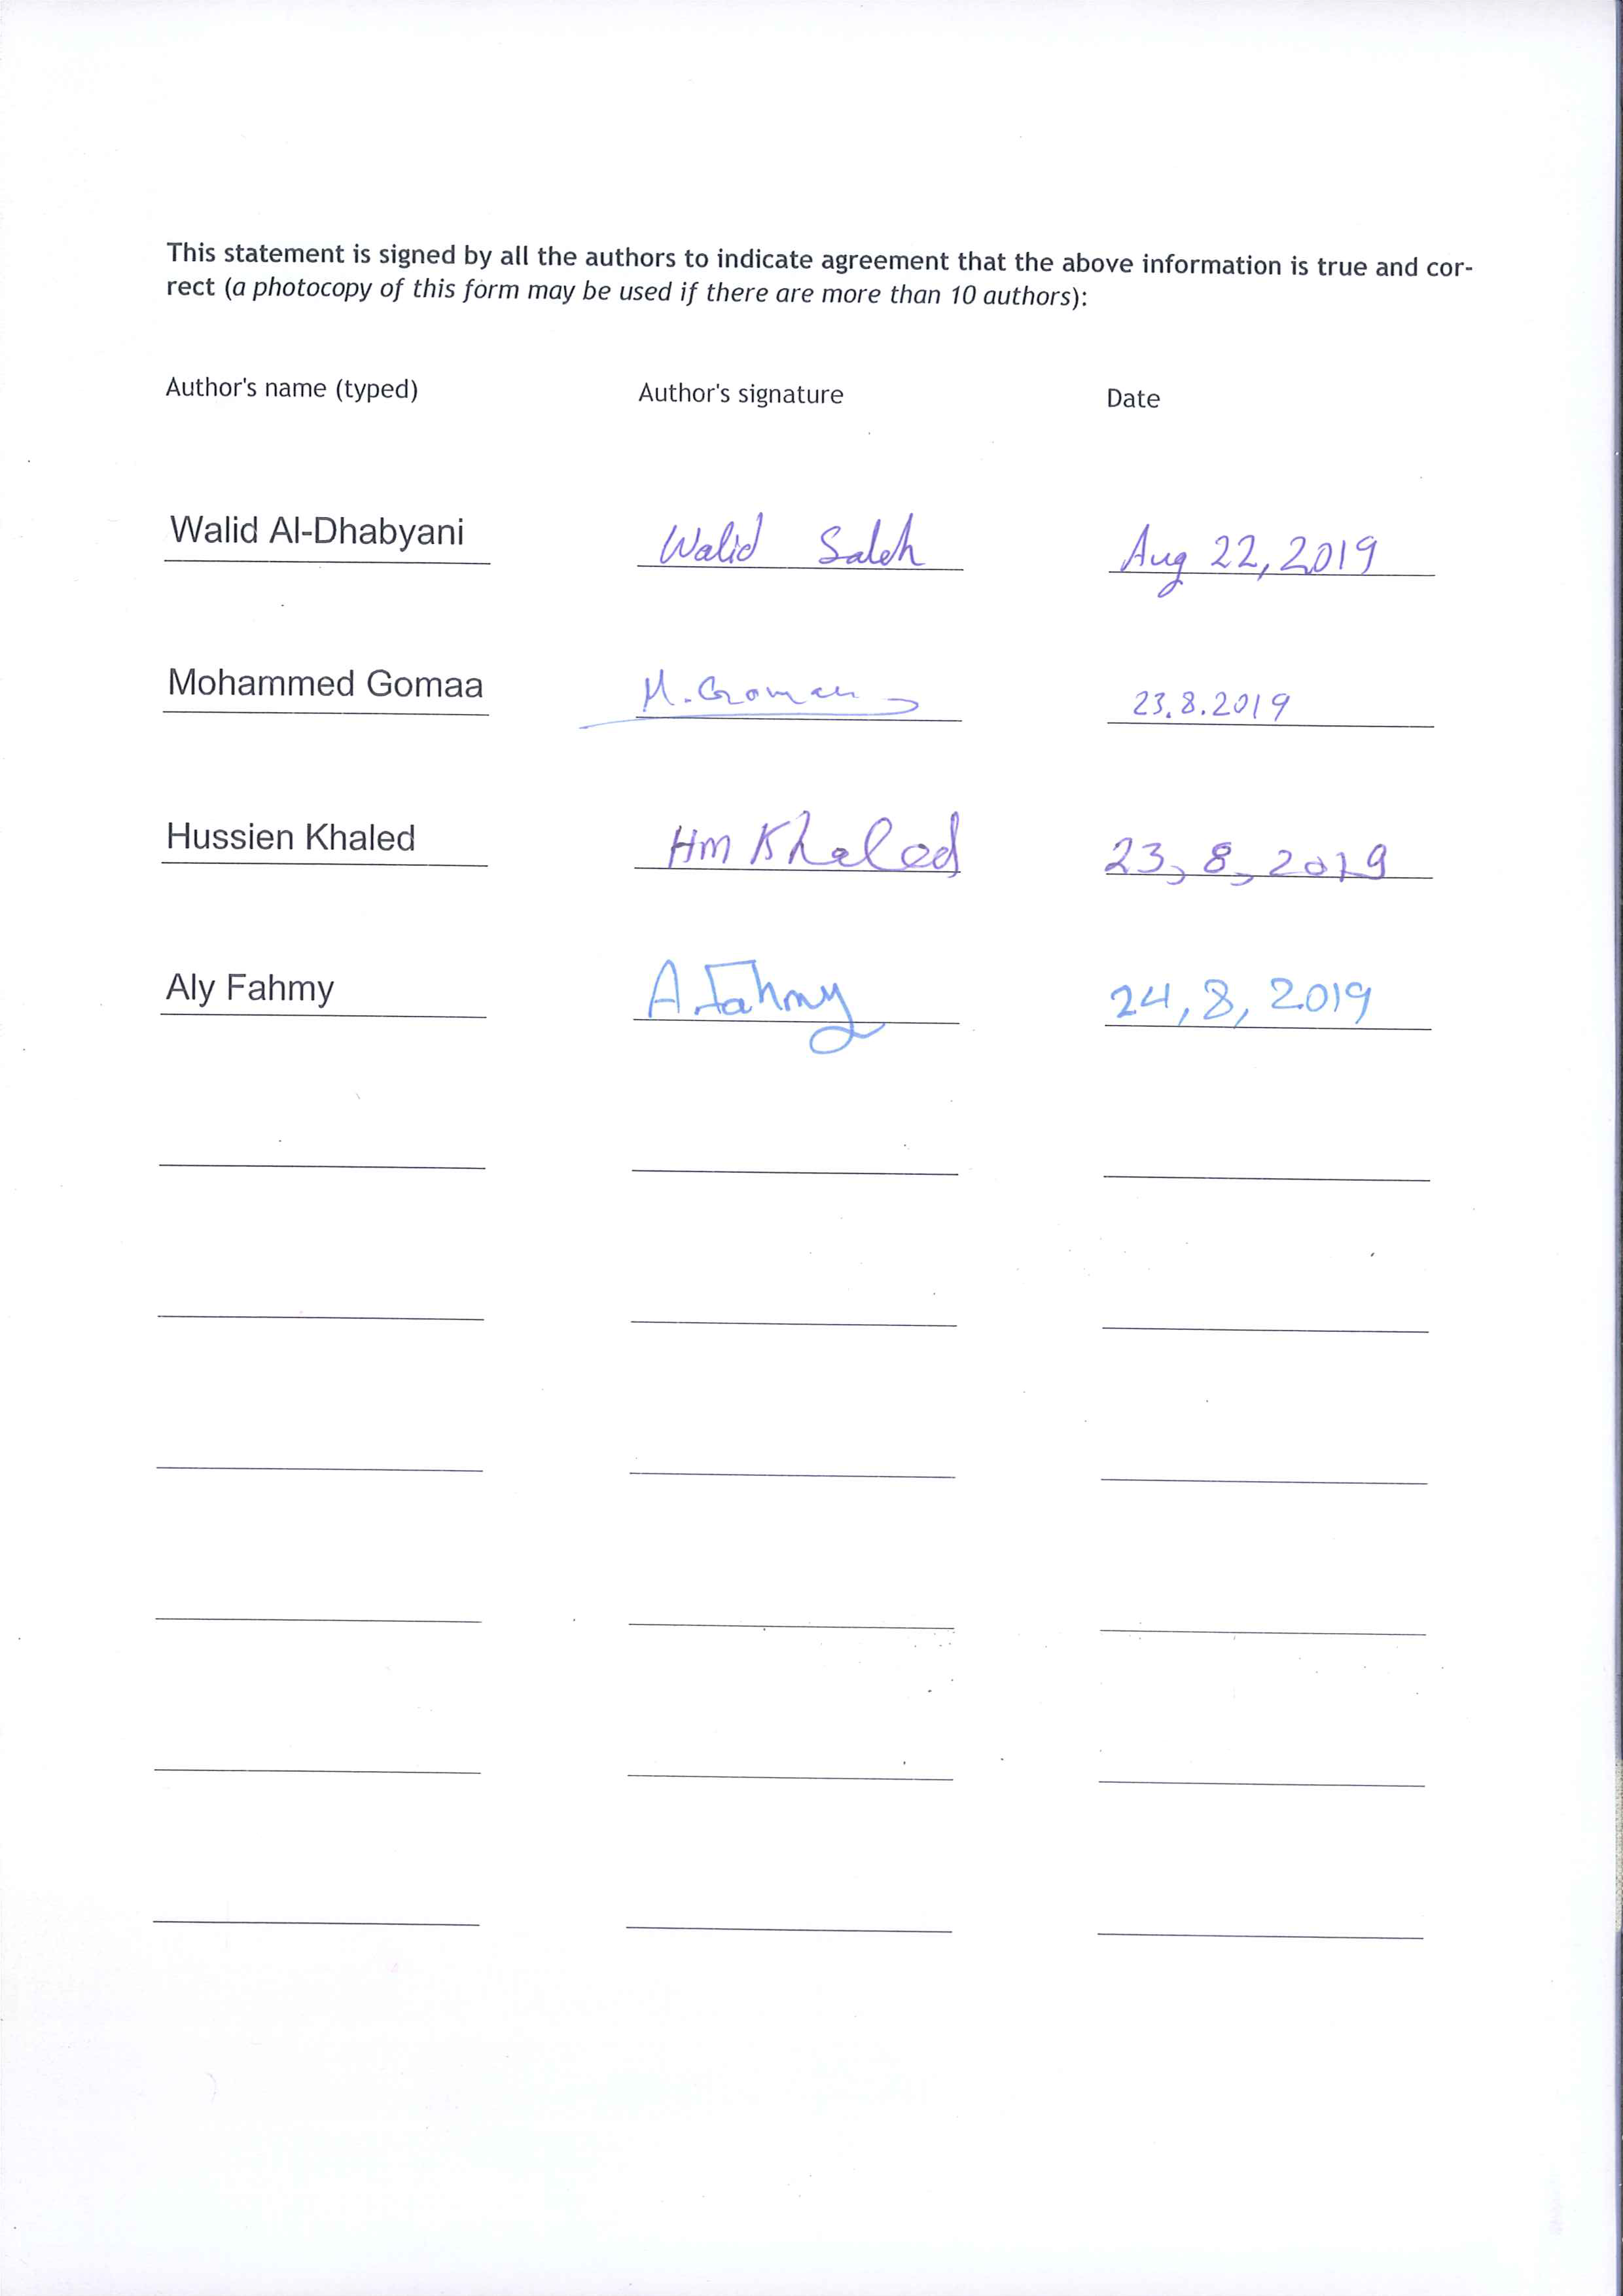 This statement is signed by all the authors to indicate agreement that the above information is true and cor-
rect (a photocopy of this form may be used if there are more than 10 authors):
Author's name (typed) Author's signature Date
Walid Al-Dhabyani Walid Saleh Aug 22, 2019
Mohammed Gomaa M. Gomaa 23.8.2019
Hussien Khaled Hm Khaled 23, 8, 2019
Aly Fahmy A. Fahmy 24, 8, 2019